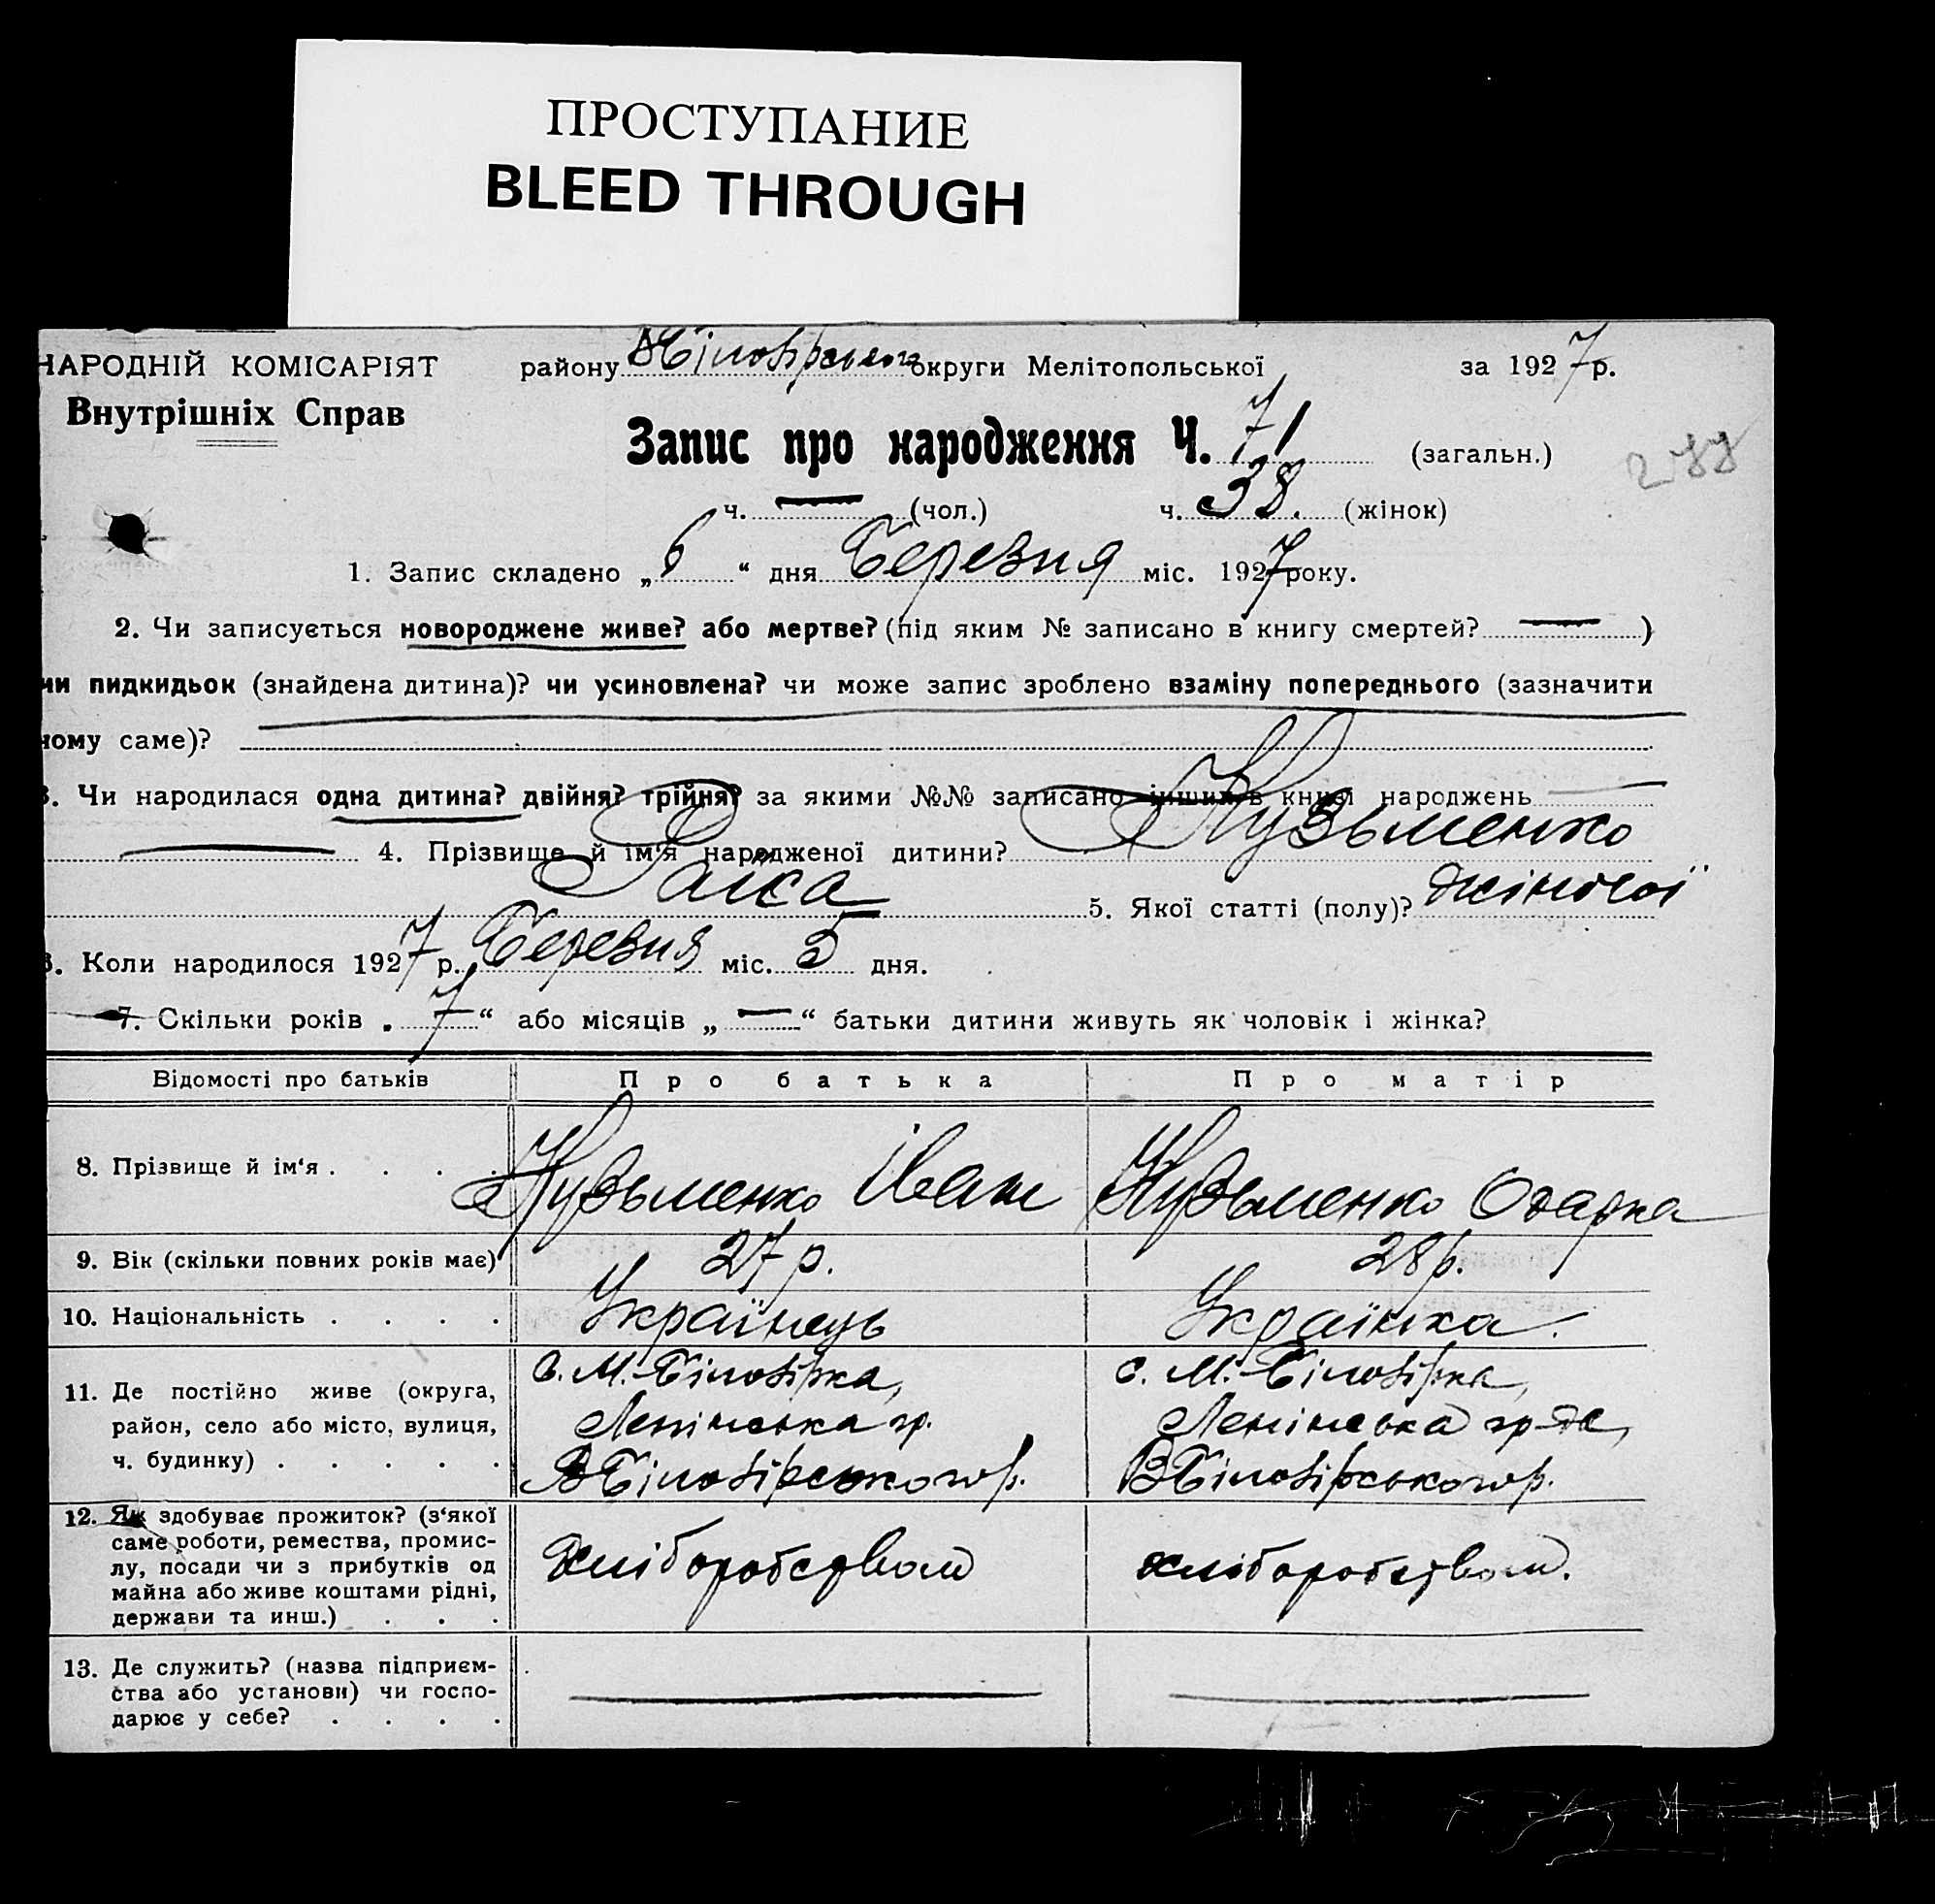 ПРОСТУПАНИЕ
BLEED THROUGH
НАРОДНІЙ КОМІСАРІЯТ району ВБіловірського округи Мелітопольської за 1927 р.
Внутрішніх Справ
Запис про народження Ч. 71 (загальн.)
288
ч. — (чол.) ч. 38. (жінок)
1. Запис складено „6“ дня Березня міс. 1927 року.
2. Чи записується новороджене живе? або мертве? (під яким № записано в книгу смертей? — )
чи пидкидьок (знайдена дитина)? чи усиновлена? чи може запис зроблено взаміну попереднього (зазначити
чому саме)?
3. Чи народилася одна дитина? двійня? трійня? за якими №№ записано інших в книзі народжень —
— 4. Прізвище й ім‘я народженої дитини? Кузьменко
Раїса 5. Якої статті (полу)? жіночої
6. Коли народилося 1927 р. Березня міс. 5 дня.
7. Скільки років „7“ або місяців „—“ батьки дитини живуть як чоловік і жінка?
Відомості про батьків Про батька Про матір
8. Прізвище й ім‘я . . . . Кузьменко Іван Кузьменко Одарка
9. Вік (скільки повних років має) 27 р. 28 р.
10. Національність . . . . Українець Українка.
11. Де постійно живе (округа, район, село або місто, вулиця, ч. будинку) . . . . .
с. М.-Біловірка,
Ленінська гр.
ВБіловірського р.
с. М.-Біловірка,
Ленінська гр-да,
ВБіловірського р.
12. Як здобуває прожиток? (з‘якої
саме роботи, ремества, промис-
лу, посади чи з прибутків од
майна або живе коштами рідні,
держави та инш.) . . .
хліборобством
хліборобством.
13. Де служить? (назва підприєм-
ства або установи) чи госпо-
дарює у себе? . . . .